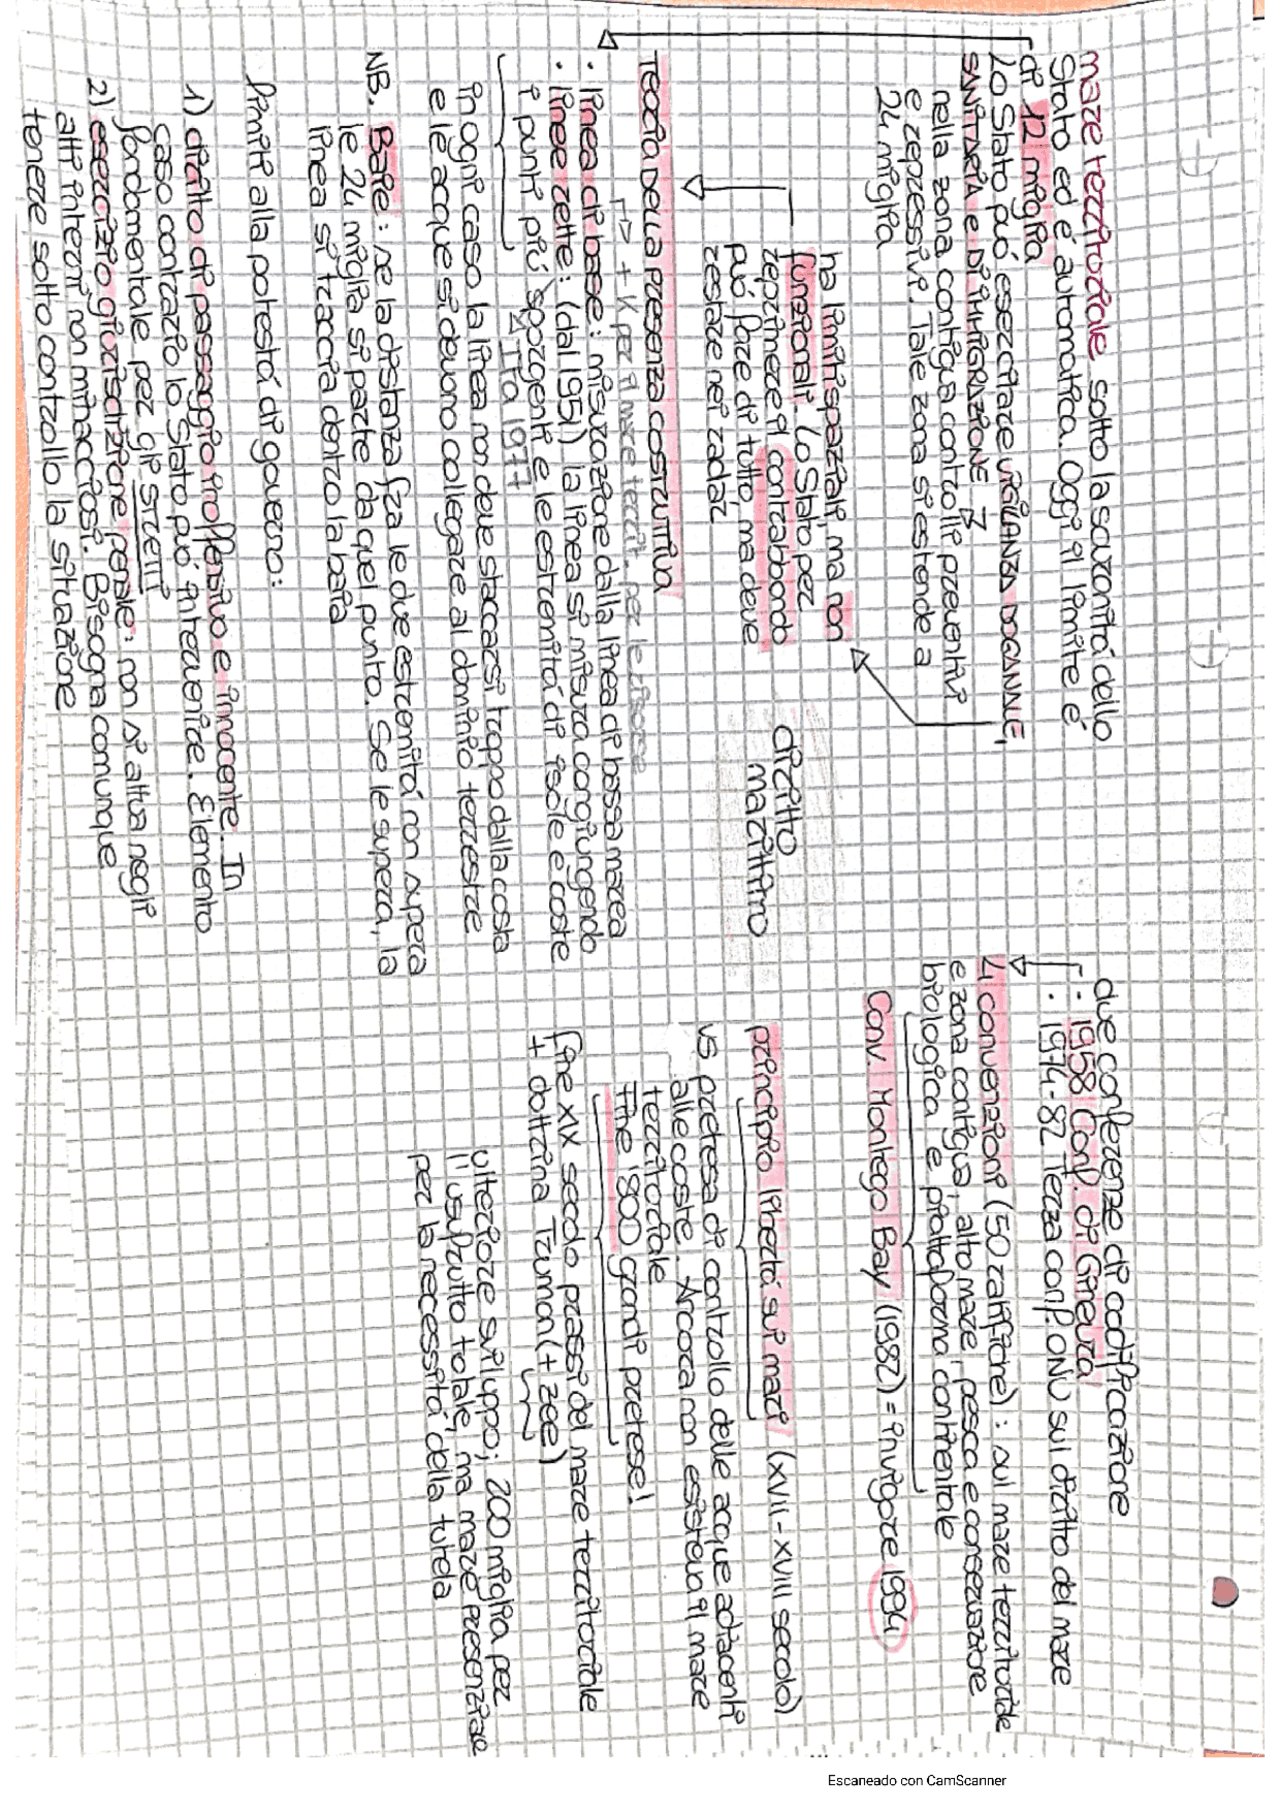 mare territoriale sotto la sovranitá dello
Stato ed é automatica. Oggi il limite é
di 12 miglia
Lo Stato puó esercitare VIGILANZA DOGANALE,
SANITARIA e DI IMMIGRAZIONE
nella zona contigua controlli preventivi
e repressivi. Tale zona si estende a
24 miglia
ha limiti spaziali, ma non
funzionali. Lo Stato per
reprimere il contrabbando
puó fare di tutto, ma deve
restare nei radar
TEORIA DELLA PRESENZA COSTRUTTIVA
+ K per il mare territ. per le risorse
· linea di base: misurazione dalla linea di bassa marea
· linee rette: (dal 1951) la linea si misura congiungendo
i punti piú sporgenti e le estremitá di isole e coste
ITA 1977
in ogni caso la linea non deve staccarsi troppo dalla costa
e le acque si devono collegare al dominio terrestre
NB. Baie: se la distanza fra le due estremitá non supera
le 24 miglia si parte da quel punto. Se le supera, la
linea si traccia dentro la baia
limiti alla potestá di governo:
1) diritto di passaggio inoffensivo e innocente. In
caso contrario lo Stato puó intervenire. Elemento
fondamentale per gli STRETTI
2) esercizio giurisdizione penale: non si attua negli
atti interni non minacciosi. Bisogna comunque
tenere sotto controllo la situazione
diritto
marittimo
due conferenze di codificazione
· 1958 Conf. di Ginevra
· 1974-82 Terza conf. ONU sul diritto del mare
4 convenzioni (50 ratifiche): sul mare territoriale
e zona contigua, alto mare, pesca e conservazione
biologica e piattaforma continentale
Conv. Montego Bay (1982) = in vigore 1994
principio libertá sui mari (XVII-XVIII secolo)
vs pretesa di controllo delle acque adiacenti
alle coste. Ancora non esisteva il mare
territoriale
fine '800 grandi pretese!
fine XIX secolo prassi del mare territoriale
+ dottrina Truman (+ zee)
ulteriore sviluppo; 200 miglia per
l'usufrutto totale, ma mare presenziale
per la necessitá della tutela
Escaneado con CamScanner